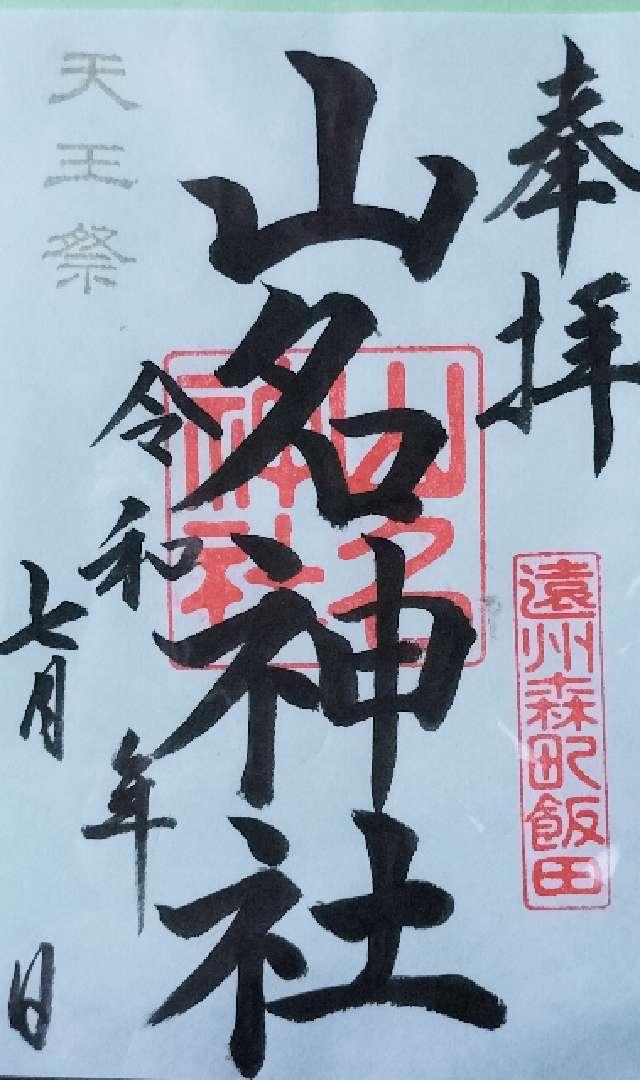 奉拝
遠州森町飯田
山名神社
山名神社
令和 年
七月 日
天王祭